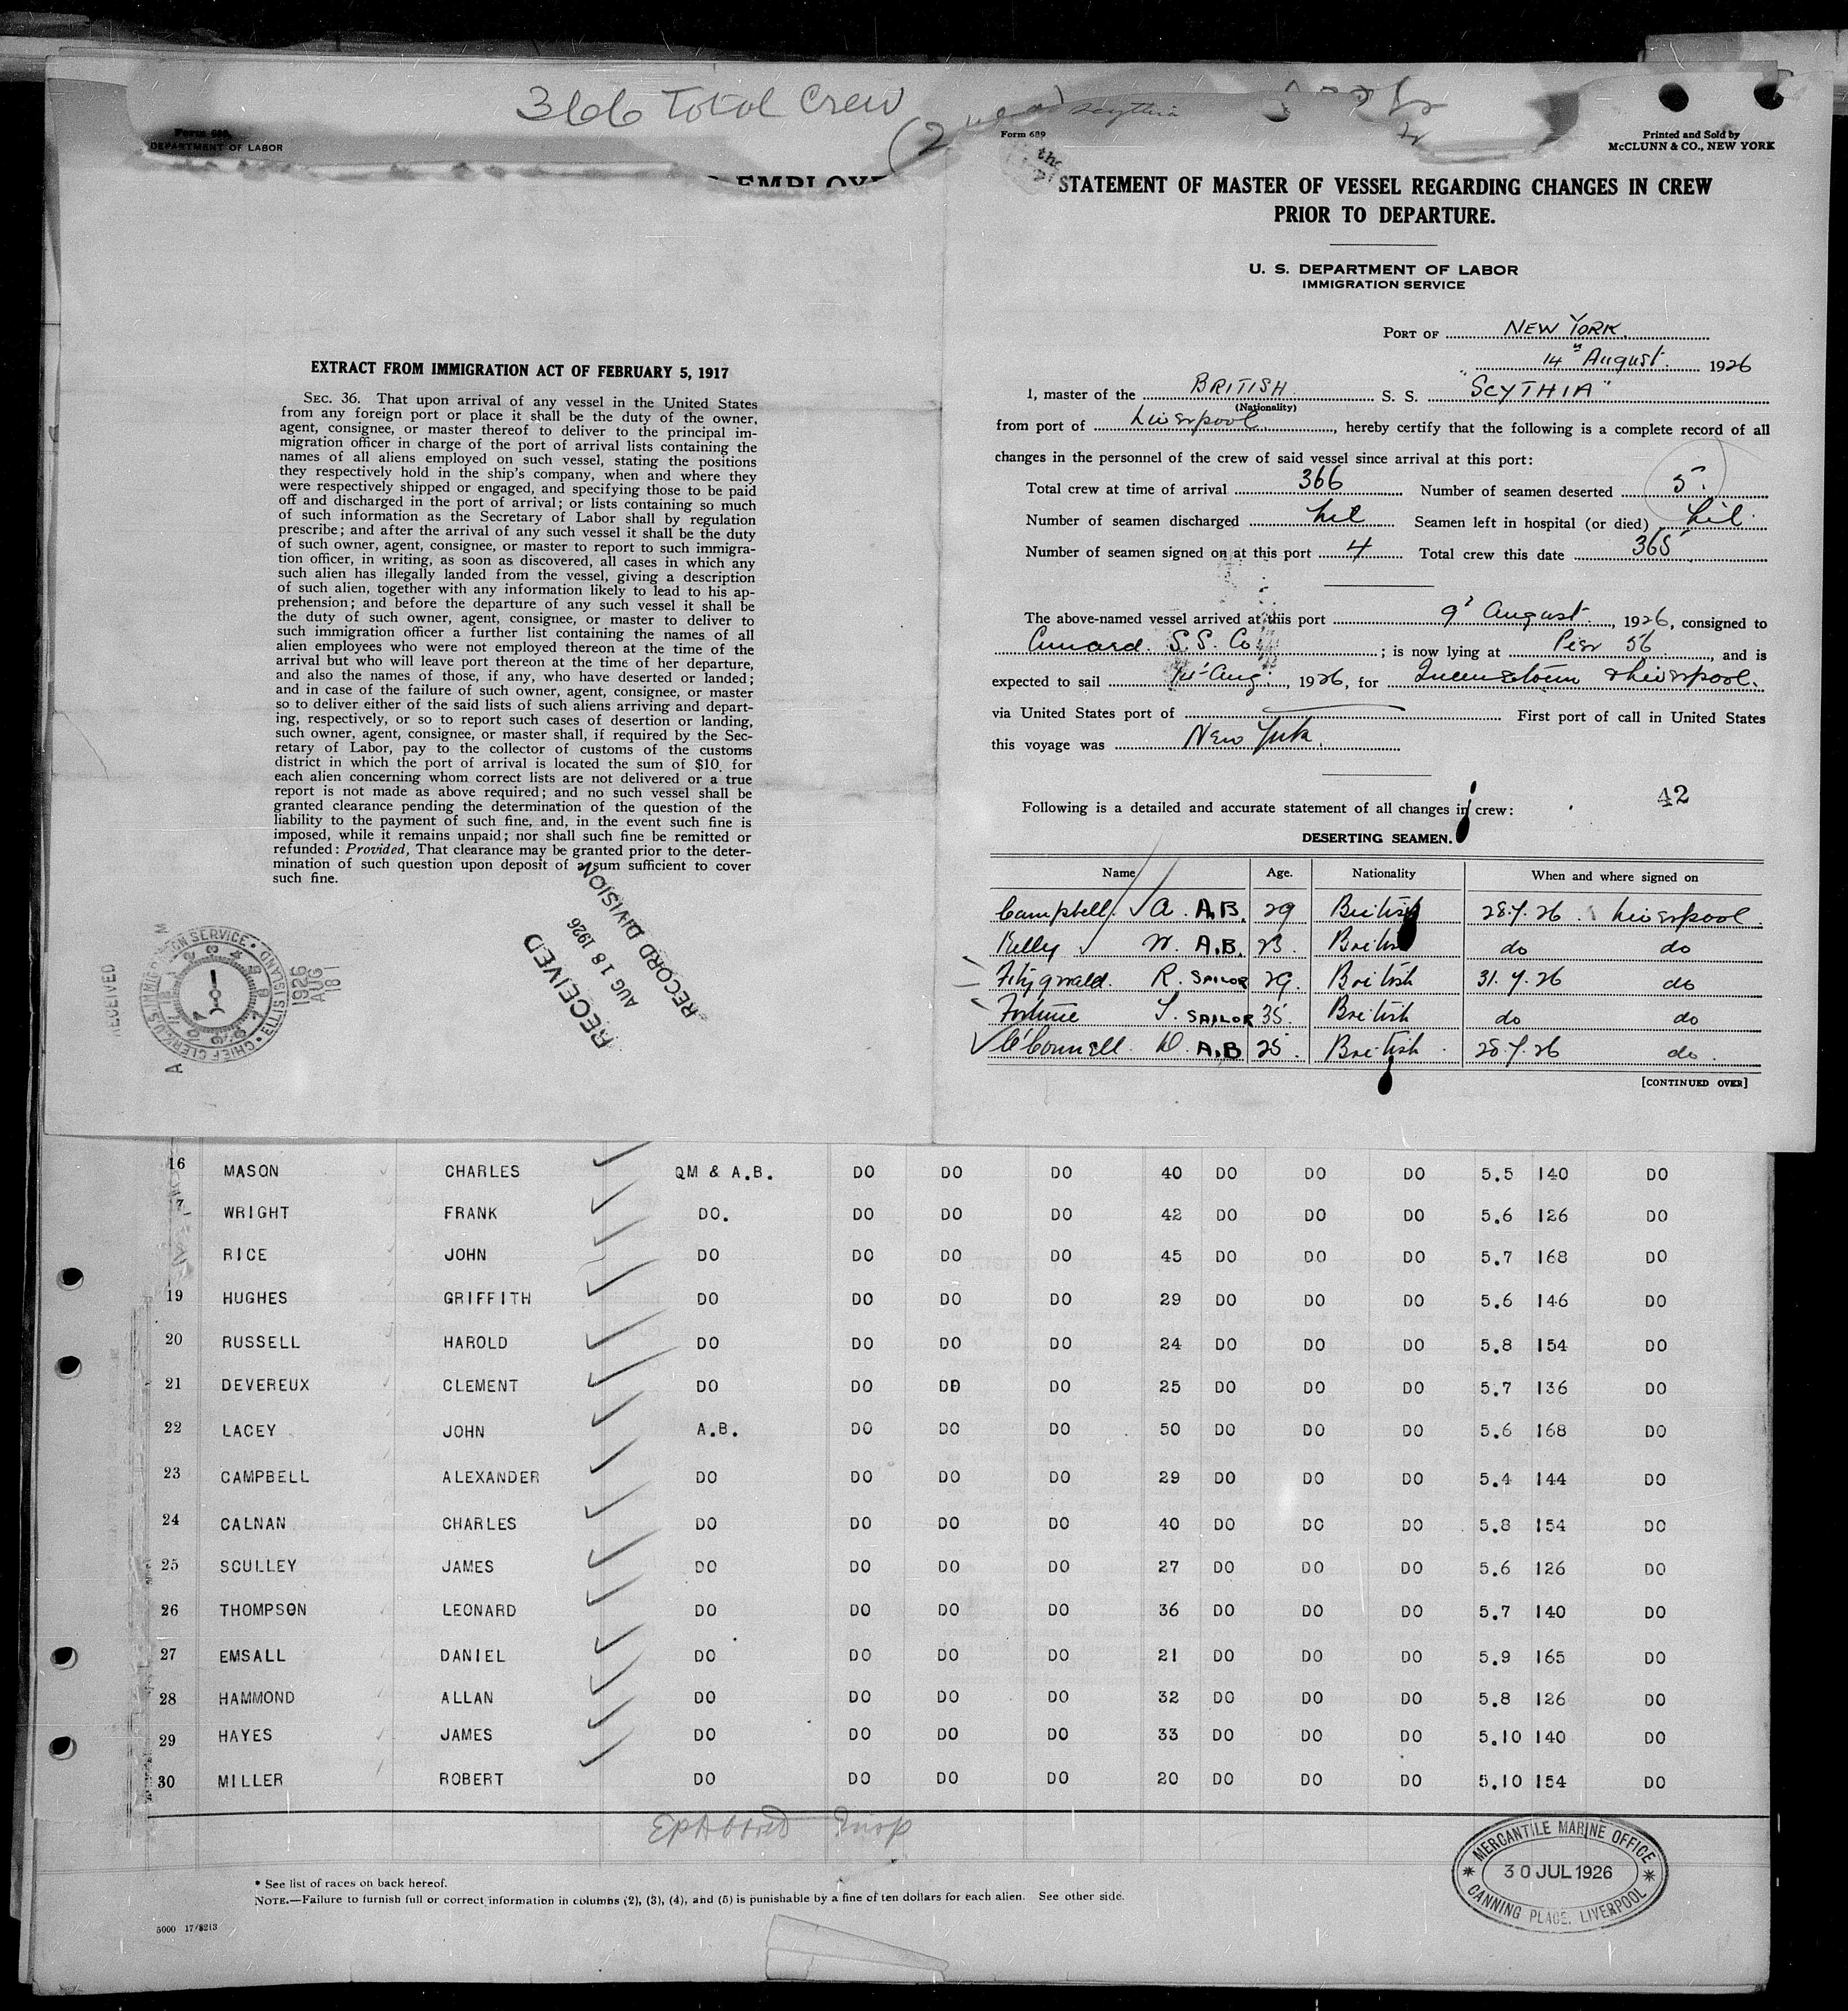 366 Total Crew
Form 689
DEPARTMENT OF LABOR
EXTRACT FROM IMMIGRATION ACT OF FEBRUARY 5, 1917
SEC. 36. That upon arrival of any vessel in the United States
from any foreign port or place it shall be the duty of the owner,
agent, consignee, or master thereof to deliver to the principal im-
migration officer in charge of the port of arrival lists containing the
names of all aliens employed on such vessel, stating the positions
they respectively hold in the ship's company, when and where they
were respectively shipped or engaged, and specifying those to be paid
off and discharged in the port of arrival; or lists containing so much
of such information as the Secretary of Labor shall by regulation
prescribe; and after the arrival of any such vessel it shall be the duty
of such owner, agent, consignee, or master to report to such immigra-
tion officer, in writing, as soon as discovered, all cases in which any
such alien has illegally landed from the vessel, giving a description
of such alien, together with any information likely to lead to his ap-
prehension; and before the departure of any such vessel it shall be
the duty of such owner, agent, consignee, or master to deliver to
such immigration officer a further list containing the names of all
alien employees who were not employed thereon at the time of the
arrival but who will leave port thereon at the time of her departure,
and also the names of those, if any, who have deserted or landed;
and in case of the failure of such owner, agent, consignee, or master
so to deliver either of the said lists of such aliens arriving and depart-
ing, respectively, or so to report such cases of desertion or landing,
such owner, agent, consignee, or master shall, if required by the Sec-
retary of Labor, pay to the collector of customs of the customs
district in which the port of arrival is located the sum of $10 for
each alien concerning whom correct lists are not delivered or a true
report is not made as above required; and no such vessel shall be
granted clearance pending the determination of the question of the
liability to the payment of such fine, and, in the event such fine is
imposed, while it remains unpaid; nor shall such fine be remitted or
refunded: Provided, That clearance may be granted prior to the deter-
mination of such question upon deposit of a sum sufficient to cover
such fine.
RECEIVED
AUG 18 1926
RECORD DIVISION
RECEIVED
CHIEF CLERK U.S. IMMIGRATION SERVICE ELLIS ISLAND
1926
AUG
18
Scythia
Form 689
Printed and Sold by
McCLUNN & CO., NEW YORK
STATEMENT OF MASTER OF VESSEL REGARDING CHANGES IN CREW
PRIOR TO DEPARTURE.
U. S. DEPARTMENT OF LABOR
IMMIGRATION SERVICE
PORT OF NEW YORK.
14" August. 1926
I, master of the BRITISH. S. S. "SCYTHIA"
(Nationality)
from port of Liverpool, hereby certify that the following is a complete record of all
changes in the personnel of the crew of said vessel since arrival at this port:
Total crew at time of arrival 366 Number of seamen deserted 5.
Number of seamen discharged Nil Seamen left in hospital (or died) Nil.
Number of seamen signed on at this port 4 Total crew this date 365
The above-named vessel arrived at this port 9' August., 1926, consigned to
Cunard. S.S. Co; is now lying at Pier 56, and is
expected to sail 14' Aug., 1926, for Queenstown & Liverpool.
via United States port of First port of call in United States
this voyage was New York.
42
Following is a detailed and accurate statement of all changes in crew:
DESERTING SEAMEN.
Name Age. Nationality When and where signed on
Campbell. A. A.B. 29 British 28.7.26. Liverpool.
Kelly W. A.B. 23. British do do
Fitzgerald. R. SAILOR 29. British 31.7.26 do
Fortune T. SAILOR 35. British do do
O'Connell. D. A.B 25. British. 28.7.26 do.
[CONTINUED OVER]
16 MASON CHARLES QM & A.B. DO DO DO 40 DO DO DO 5.5 140 DO
WRIGHT FRANK DO. DO DO DO 42 DO DO DO 5.6 126 DO
RICE JOHN DO DO DO DO 45 DO DO DO 5.7 168 DO
19 HUGHES GRIFFITH DO DO DO DO 29 DO DO DO 5.6 146 DO
20 RUSSELL HAROLD DO DO DO DO 24 DO DO DO 5.8 154 DO
21 DEVEREUX CLEMENT DO DO DO DO 25 DO DO DO 5.7 136 DO
22 LACEY JOHN A.B. DO DO DO 50 DO DO DO 5.6 168 DO
23 CAMPBELL ALEXANDER DO DO DO DO 29 DO DO DO 5.4 144 DO
24 CALNAN CHARLES DO DO DO DO 40 DO DO DO 5.8 154 DO
25 SCULLEY JAMES DO DO DO DO 27 DO DO DO 5.6 126 DO
26 THOMPSON LEONARD DO DO DO DO 36 DO DO DO 5.7 140 DO
27 EMSALL DANIEL DO DO DO DO 21 DO DO DO 5.9 165 DO
28 HAMMOND ALLAN DO DO DO DO 32 DO DO DO 5.8 126 DO
29 HAYES JAMES DO DO DO DO 33 DO DO DO 5.10 140 DO
30 MILLER ROBERT DO DO DO DO 20 DO DO DO 5.10 154 DO
* See list of races on back hereof.
NOTE.—Failure to furnish full or correct information in columns (2), (3), (4), and (5) is punishable by a fine of ten dollars for each alien. See other side.
5000 17/8213
MERCANTILE MARINE OFFICE
30 JUL 1926
CANNING PLACE, LIVERPOOL